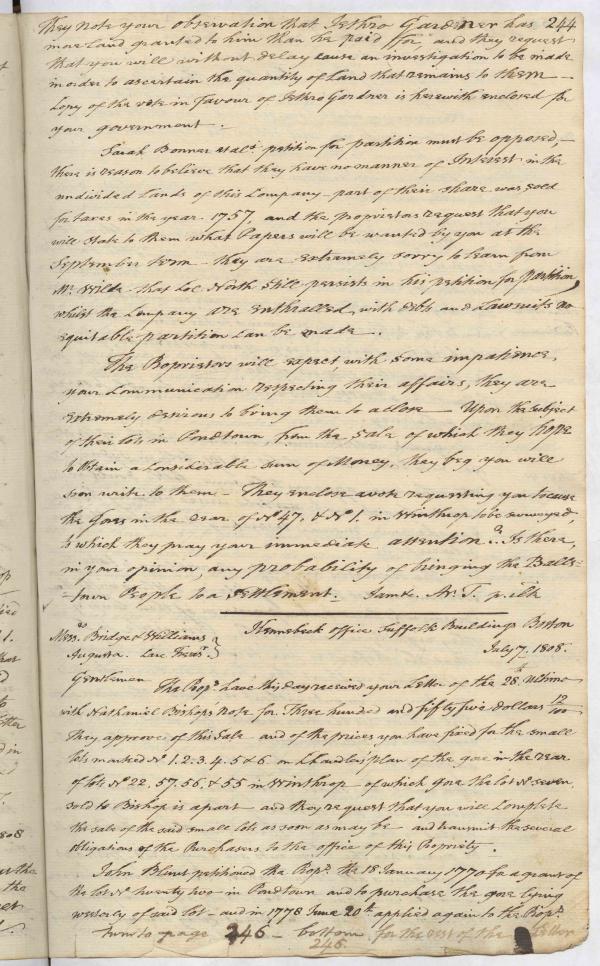 244
They note your observation that Jethro Gardner has
more Land granted to him than he paid for, and they request
that you will without delay cause an investigation to be made
in order to ascertain the quantity of Land that remains to them —
Copy of the vote in favour of Jethro Gardner is herewith enclosed for
your government.
Sarah Bonner et als. petition for partition must be opposed, —
there is reason to believe that they have no manner of Interest in the
undivided Lands of this Company — part of their share was sold
for taxes in the year 1757, and the proprietors request that you
will State to them what Papers will be wanted by you at the
September term — they are extremely sorry to learn from
Mr. Wilde that Col. North still persists in his petition for partition,
whilst the Company are enthralled with debts and Lawsuits no
equitable partition can be made.
The Proprietors will expect with some impatience,
your Communication respecting their affairs, they are
extremely desirous to bring them to a close — Upon the subject
of their lots in Pondtown, from the Sale of which they hope
to obtain a Considerable sum of Money, they beg you will
soon write to them — They enclose a vote requesting you to cause
the Gores in the rear of No 47, & No 1. in Winthrop to be surveyed,
to which they pray your immediate attention. Is there,
in your opinion, any probability of bringing the Balls=
=town People to a settlement. I am &c. Ar. T. p. Clk
Kennebeck office Suffolk Buildings Boston
Messrs. Bridge & Williams
Augusta
July 7. 1808.
Gentlemen
The Props. have this day received your Letter of the 28th. Ultimo
with Nathaniel Bishop's Note for Three hundred and fifty five dollars 12/100
they approve of this Sale and of the prices you have fixed for the small
lots marked No 1. 2. 3. 4. 5 & 6. on Chandler's plan of the gore in the rear
of lots No 22, 57. 56, & 55 in Winthrop of which gore the lot No seven
sold to Bishop is a part — and they request that you will Complete
the sale of the said small lots as soon as may be and transmit the several
obligations of the Purchasers to the office of this Propriety.
John Blunt petitioned the Props. the 18 January 1770 for a grant of
the lot No twenty two in Pondtown and to purchase the gore lying
westerly of said lot — and in 1778 June 20th. applied again to the Props.
turn to page 246 — bottom for the rest of the Letter
246